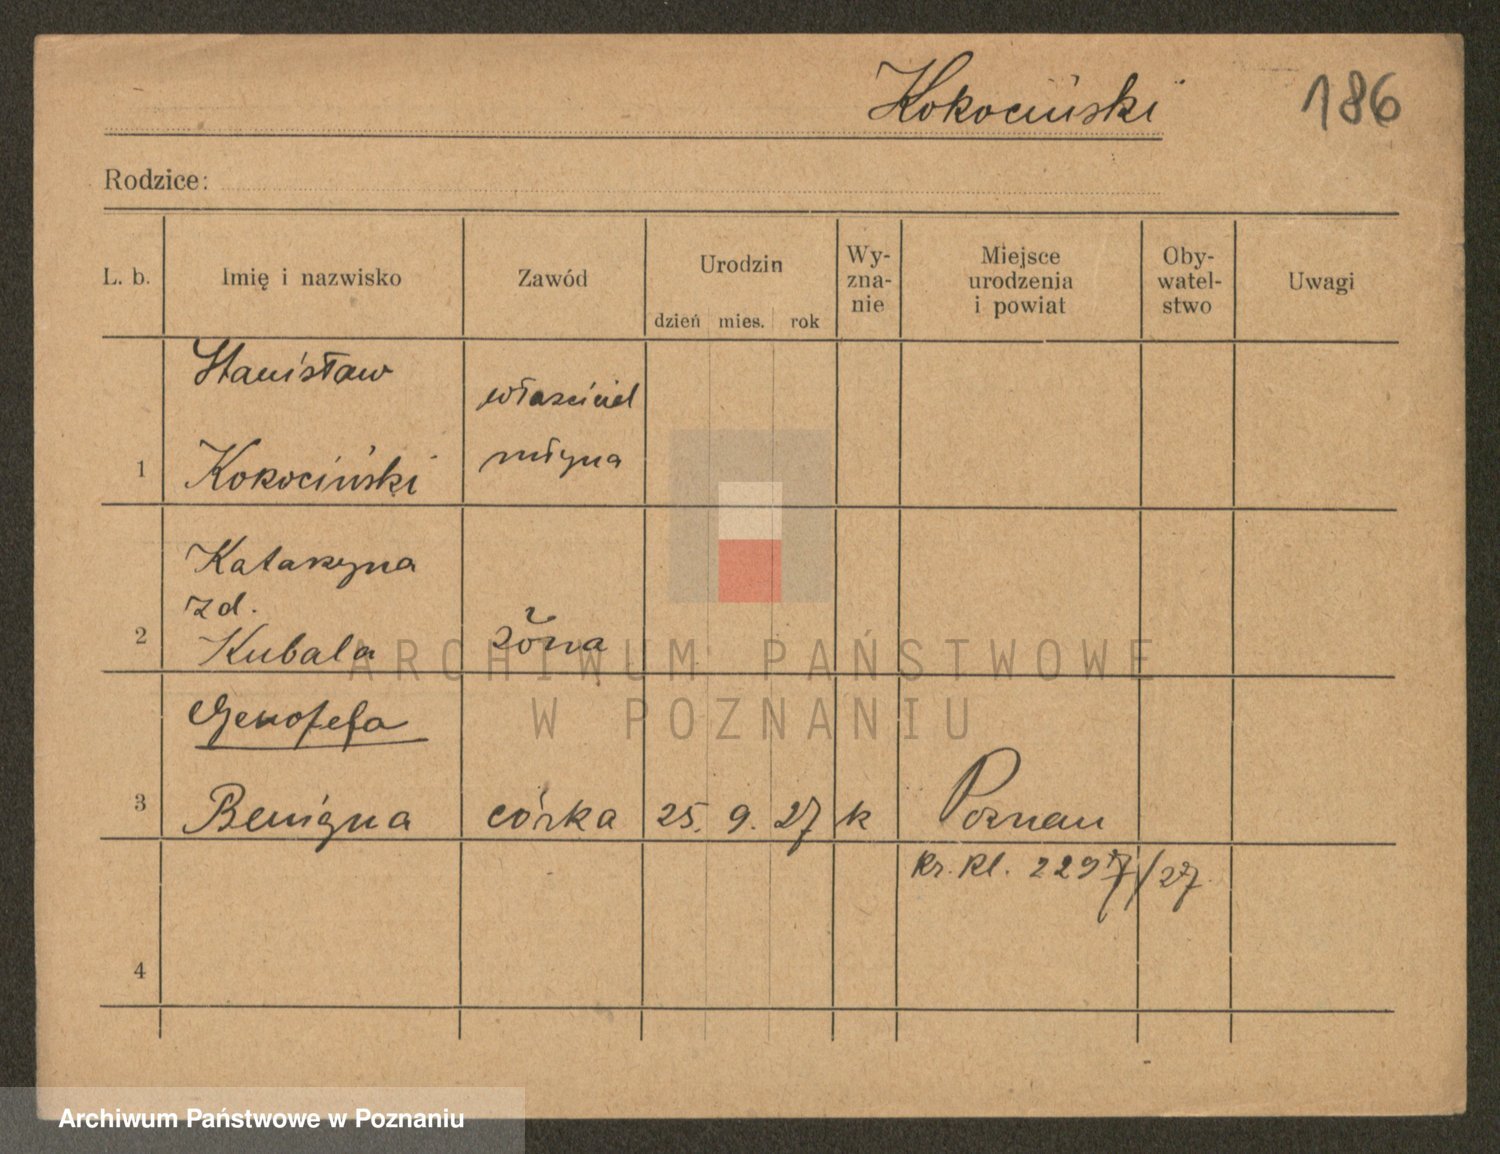 Kokociński 186
Rodzice:
L. b. Imię i nazwisko Zawód Urodzin dzień mies. rok Wy-zna-nie Miejsce urodzenia i powiat Oby-watel-stwo Uwagi
Stanisław
właściciel
młyna
1 Kokociński
Katarzyna
zd.
2 Kubala żona
Genofefa
3 Benigna córka 25. 9. 27 k Poznań
kr. kl. 2297/27
4
ARCHIWUM PAŃSTWOWE
W POZNANIU
Archiwum Państwowe w Poznaniu